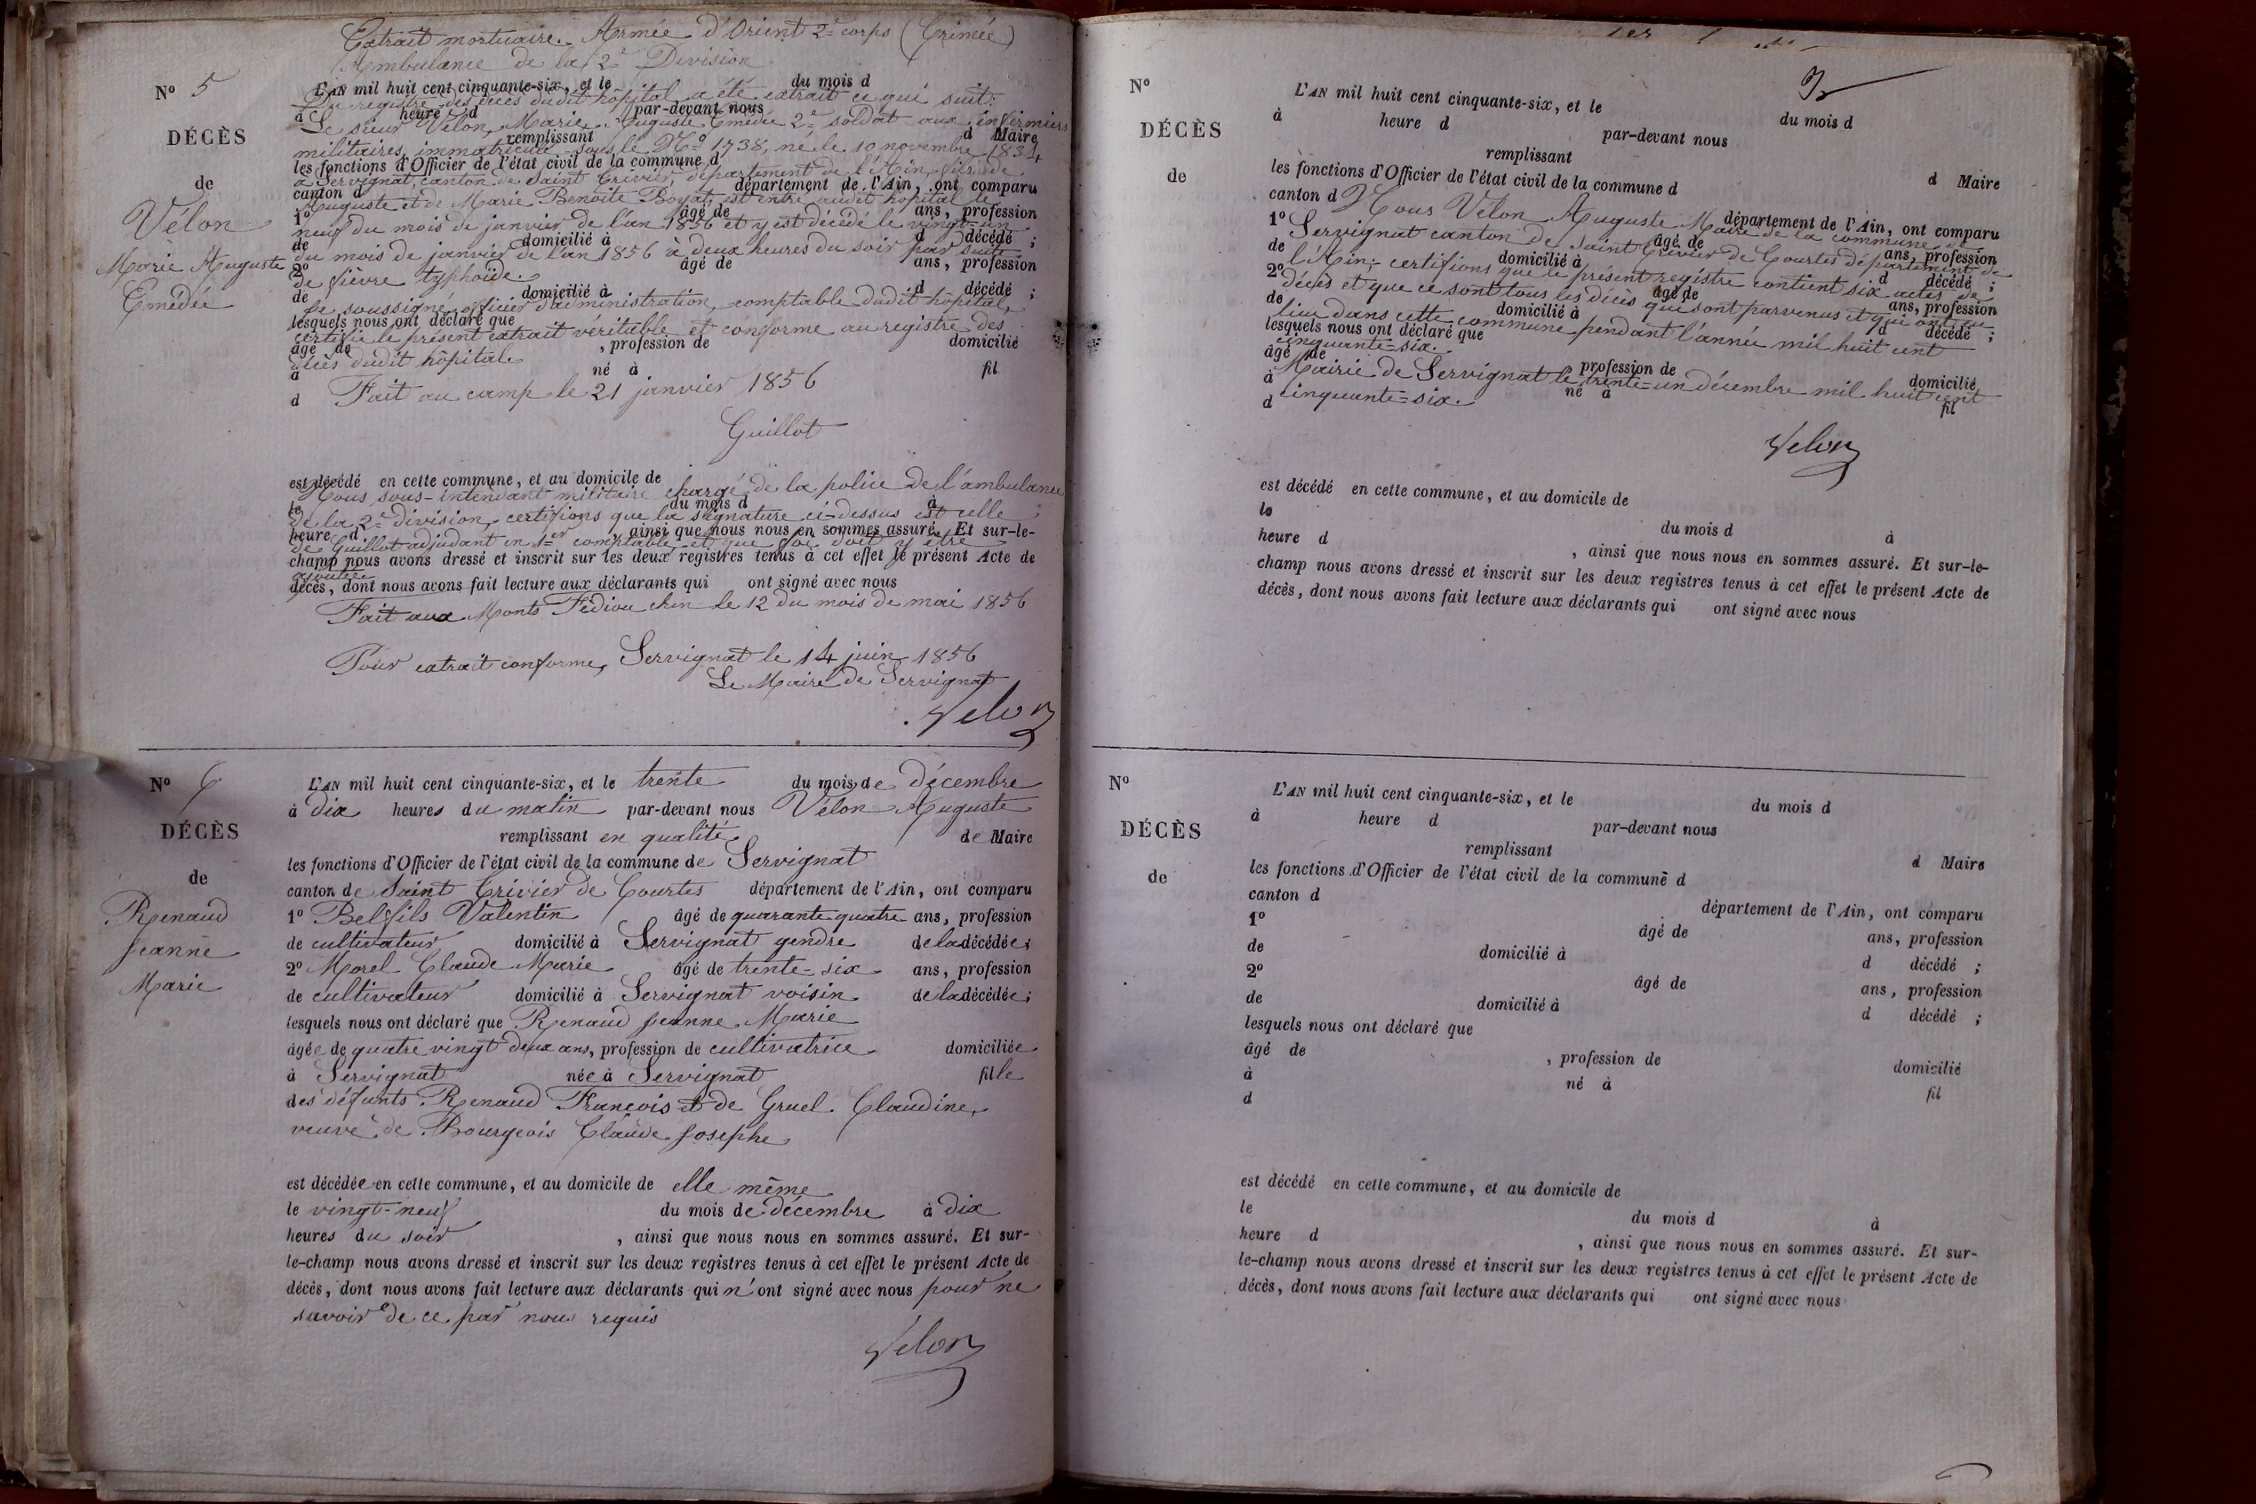 Extrait mortuaire. Armée d'Orient 2e corps (Crimée)
Ambulance de la 2e Division
No 5
DÉCÈS
de
Vélon
Marie Auguste
Emédée
L'AN mil huit cent cinquante-six, et le du mois d
Du registre des décès dudit hôpital a été extrait ce qui suit:
à heure d par-devant nous
Le sieur Vélon Marie Auguste Emédée 2e soldat aux infirmiers
remplissant d Maire
militaires immatriculé sous le No 1738, né le 10 novembre 1834
les fonctions d'Officier de l'état civil de la commune d
à Servignat, canton de Saint Trivier, département de l'Ain, fils de
canton d département de l'Ain, ont comparu
Auguste et de Marie Benoite Boyat, est entré audit hôpital le
1o âgé de ans, profession
neuf du mois de janvier de l'an 1856 et y est décédé le vingt-un
de domicilié à d décédé ;
du mois de janvier de l'an 1856 à deux heures du soir par suite
2o âgé de ans, profession
de fièvre typhoïde.
de domicilié à d décédé ;
Le soussigné officier d'administration, comptable dudit hôpital,
lesquels nous ont déclaré que
certifie le présent extrait véritable et conforme au registre des
âgé de , profession de domicilié
décès dudit hôpital
à né à fil
d Fait au camp le 21 janvier 1856
Guillot
est décédé en cette commune, et au domicile de
Nous sous-intendant militaire chargé de la police de l'ambulance
le du mois d à
de la 2e division, certifions que la signature ci-dessus est celle
heure d , ainsi que nous nous en sommes assuré. Et sur-le-
de Guillot adjudant en 1er comptable et que foi doit y être
champ nous avons dressé et inscrit sur les deux registres tenus à cet effet le présent Acte de
ajoutée
décès, dont nous avons fait lecture aux déclarants qui ont signé avec nous
Fait aux Monts Fédiou chin le 12 du mois de mai 1856
Pour extrait conforme, Servignat le 14 juin 1856
Le Maire de Servignat
Velon
No 6
DÉCÈS
de
Renaud
Jeanne
Marie
L'AN mil huit cent cinquante-six, et le trente du mois de décembre
à dix heures du matin par-devant nous Vélon Auguste
remplissant en qualité de Maire
les fonctions d'Officier de l'état civil de la commune de Servignat
canton de Saint Trivier de Courtes département de l'Ain, ont comparu
1o Belfils Valentin âgé de quarante quatre ans, profession
de cultivateur domicilié à Servignat gendre de la décédée;
2o Morel Claude Marie âgé de trente-six ans, profession
de cultivateur domicilié à Servignat voisin de la décédée;
lesquels nous ont déclaré que Renaud Jeanne Marie
âgée de quatre vingt deux ans, profession de cultivatrice domiciliée
à Servignat née à Servignat fille
des défunts Renaud François et de Gruel Claudine,
veuve de Bourgeois Claude Josephe
est décédée en cette commune, et au domicile de elle même
le vingt-neuf du mois de décembre à dix
heures du soir , ainsi que nous nous en sommes assuré. Et sur-
le-champ nous avons dressé et inscrit sur les deux registres tenus à cet effet le présent Acte de
décès, dont nous avons fait lecture aux déclarants qui n'ont signé avec nous pour ne
savoir de ce par nous requis
Velon
No
DÉCÈS
de
L'AN mil huit cent cinquante-six, et le du mois d
à heure d par-devant nous
remplissant d Maire
les fonctions d'Officier de l'état civil de la commune d
canton d département de l'Ain, ont comparu
Nous Vélon Auguste Maire de la commune de
1o âgé de ans, profession
Servignat canton de Saint Trivier de Courtes département de
de domicilié à d décédé ;
l'Ain, certifions que le présent registre contient six actes de
2o âgé de ans, profession
décès et que ce sont tous les décès qui sont parvenus et qui ont eu
de domicilié à d décédé ;
lieu dans cette commune pendant l'année mil huit cent
lesquels nous ont déclaré que
cinquante-six.
âgé de profession de domicilié
Mairie de Servignat le trente-un décembre mil huit cent
à né à fil
d cinquante-six.
Velon
est décédé en cette commune, et au domicile de
le du mois d à
heure d , ainsi que nous nous en sommes assuré. Et sur-le-
champ nous avons dressé et inscrit sur les deux registres tenus à cet effet le présent Acte de
décès, dont nous avons fait lecture aux déclarants qui ont signé avec nous
No
DÉCÈS
de
L'AN mil huit cent cinquante-six, et le du mois d
à heure d par-devant nous
remplissant d Maire
les fonctions d'Officier de l'état civil de la commune d
canton d département de l'Ain, ont comparu
1o âgé de ans, profession
de domicilié à d décédé ;
2o âgé de ans, profession
de domicilié à d décédé ;
lesquels nous ont déclaré que
âgé de , profession de domicilié
à né à fil
d
est décédé en cette commune, et au domicile de
le du mois d à
heure d , ainsi que nous nous en sommes assuré. Et sur-
le-champ nous avons dressé et inscrit sur les deux registres tenus à cet effet le présent Acte de
décès, dont nous avons fait lecture aux déclarants qui ont signé avec nous